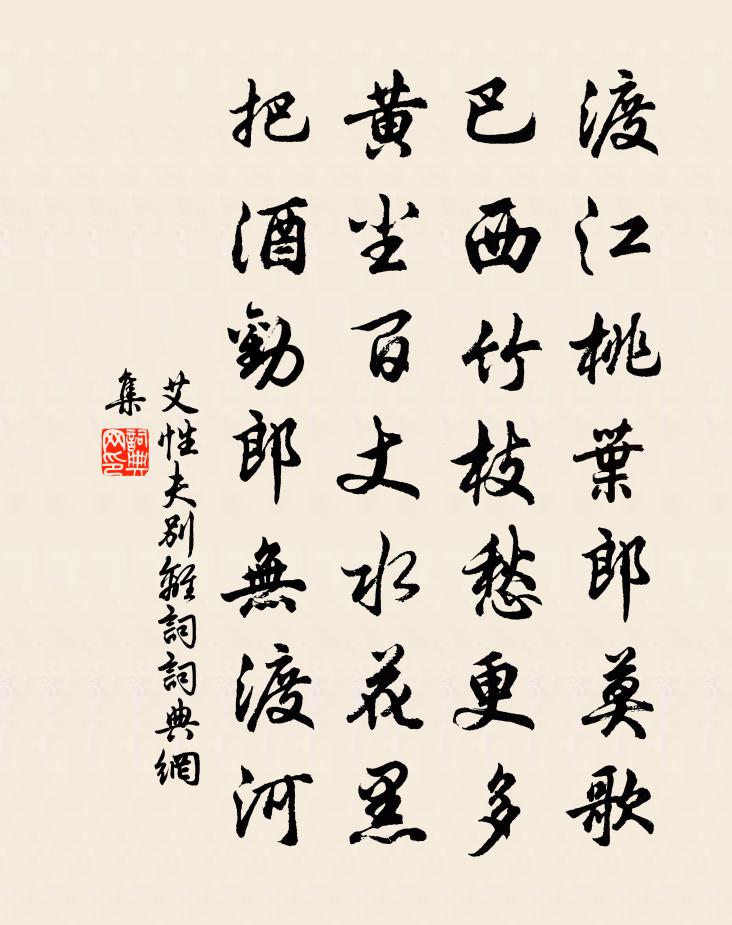 渡江桃葉郎莫歌
巴西竹枝愁更多
黄塵百丈水花黑
把酒勸郎無渡河
艾性夫別離詞詞典網
集
詞典
网印